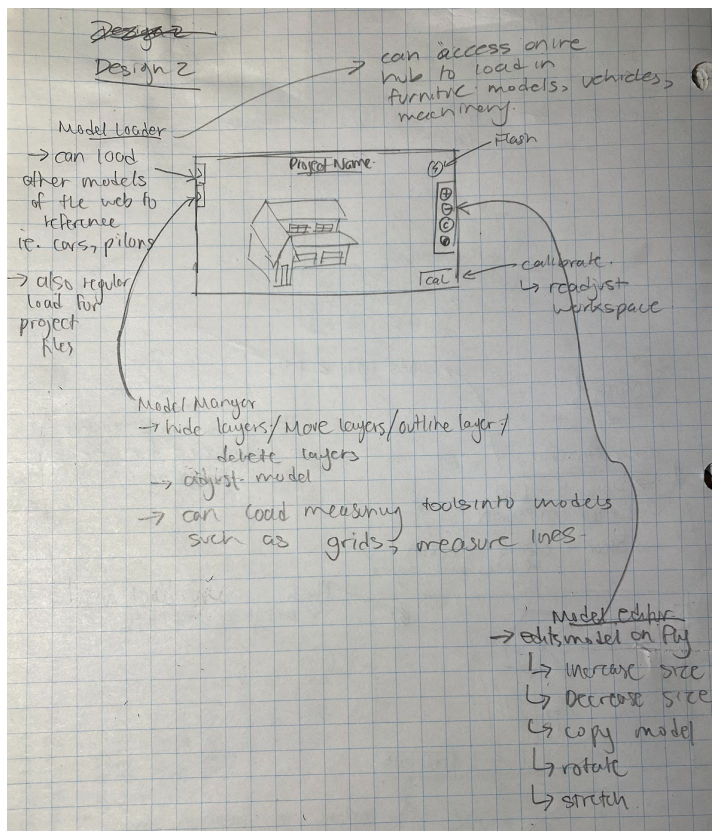 Design 2
Design 2
can access onlne
hub to load in
furnitre models, vehicles,
machinery.
Model Loader
→ can load
other models
of the web to
reference
ie. cars, pilons
→ also reguler
load for
project
files
Project Name
Flash
cal
callibrate.
↳ readjust
workspace
Model Manger
→ hide layers/Move layers/outline layer/
delete layers
→ adjust model
→ can load measuring tools into models
such as grids, measure lines
Model editor
→ edits model on fly
↳ increase size
↳ Decrease size
↳ copy model
↳ rotate
↳ stretch